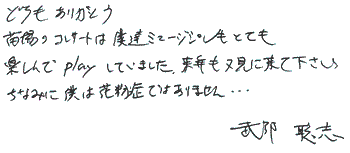 どうもありがとう
苗場のコンサートは僕達ミュージシャンもとても
楽しんでplayしていました。来年も又見に来て下さい。
ちなみに僕は花粉症ではありません・・・
武部 聡志